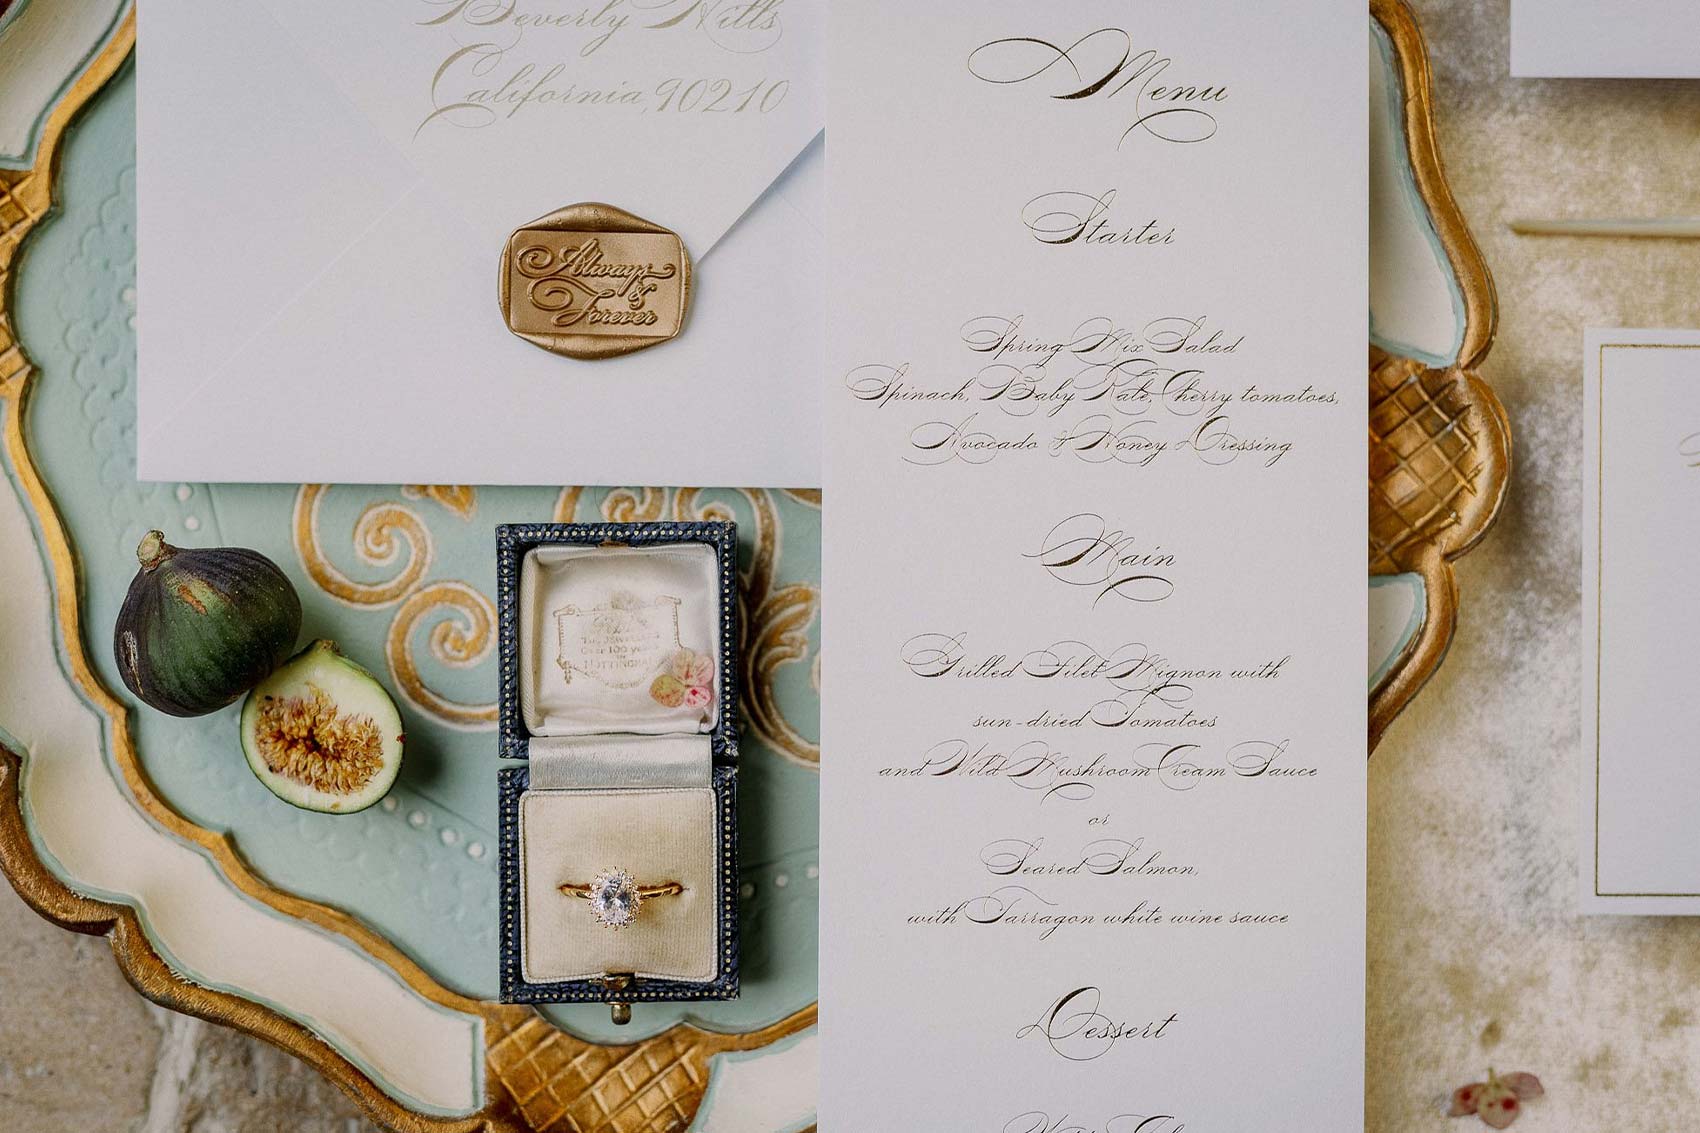 Beverly Hills
California, 90210
Always
&
Forever
THE JEWELLERS
Over 100 years
NOTTINGHAM
Menu
Starter
Spring Mix Salad
Spinach, Baby Kale, Cherry tomatoes,
Avocado & Honey Dressing
Main
Grilled Filet Mignon with
sun-dried Tomatoes
and Wild Mushroom Cream Sauce
or
Seared Salmon,
with Tarragon white wine sauce
Dessert